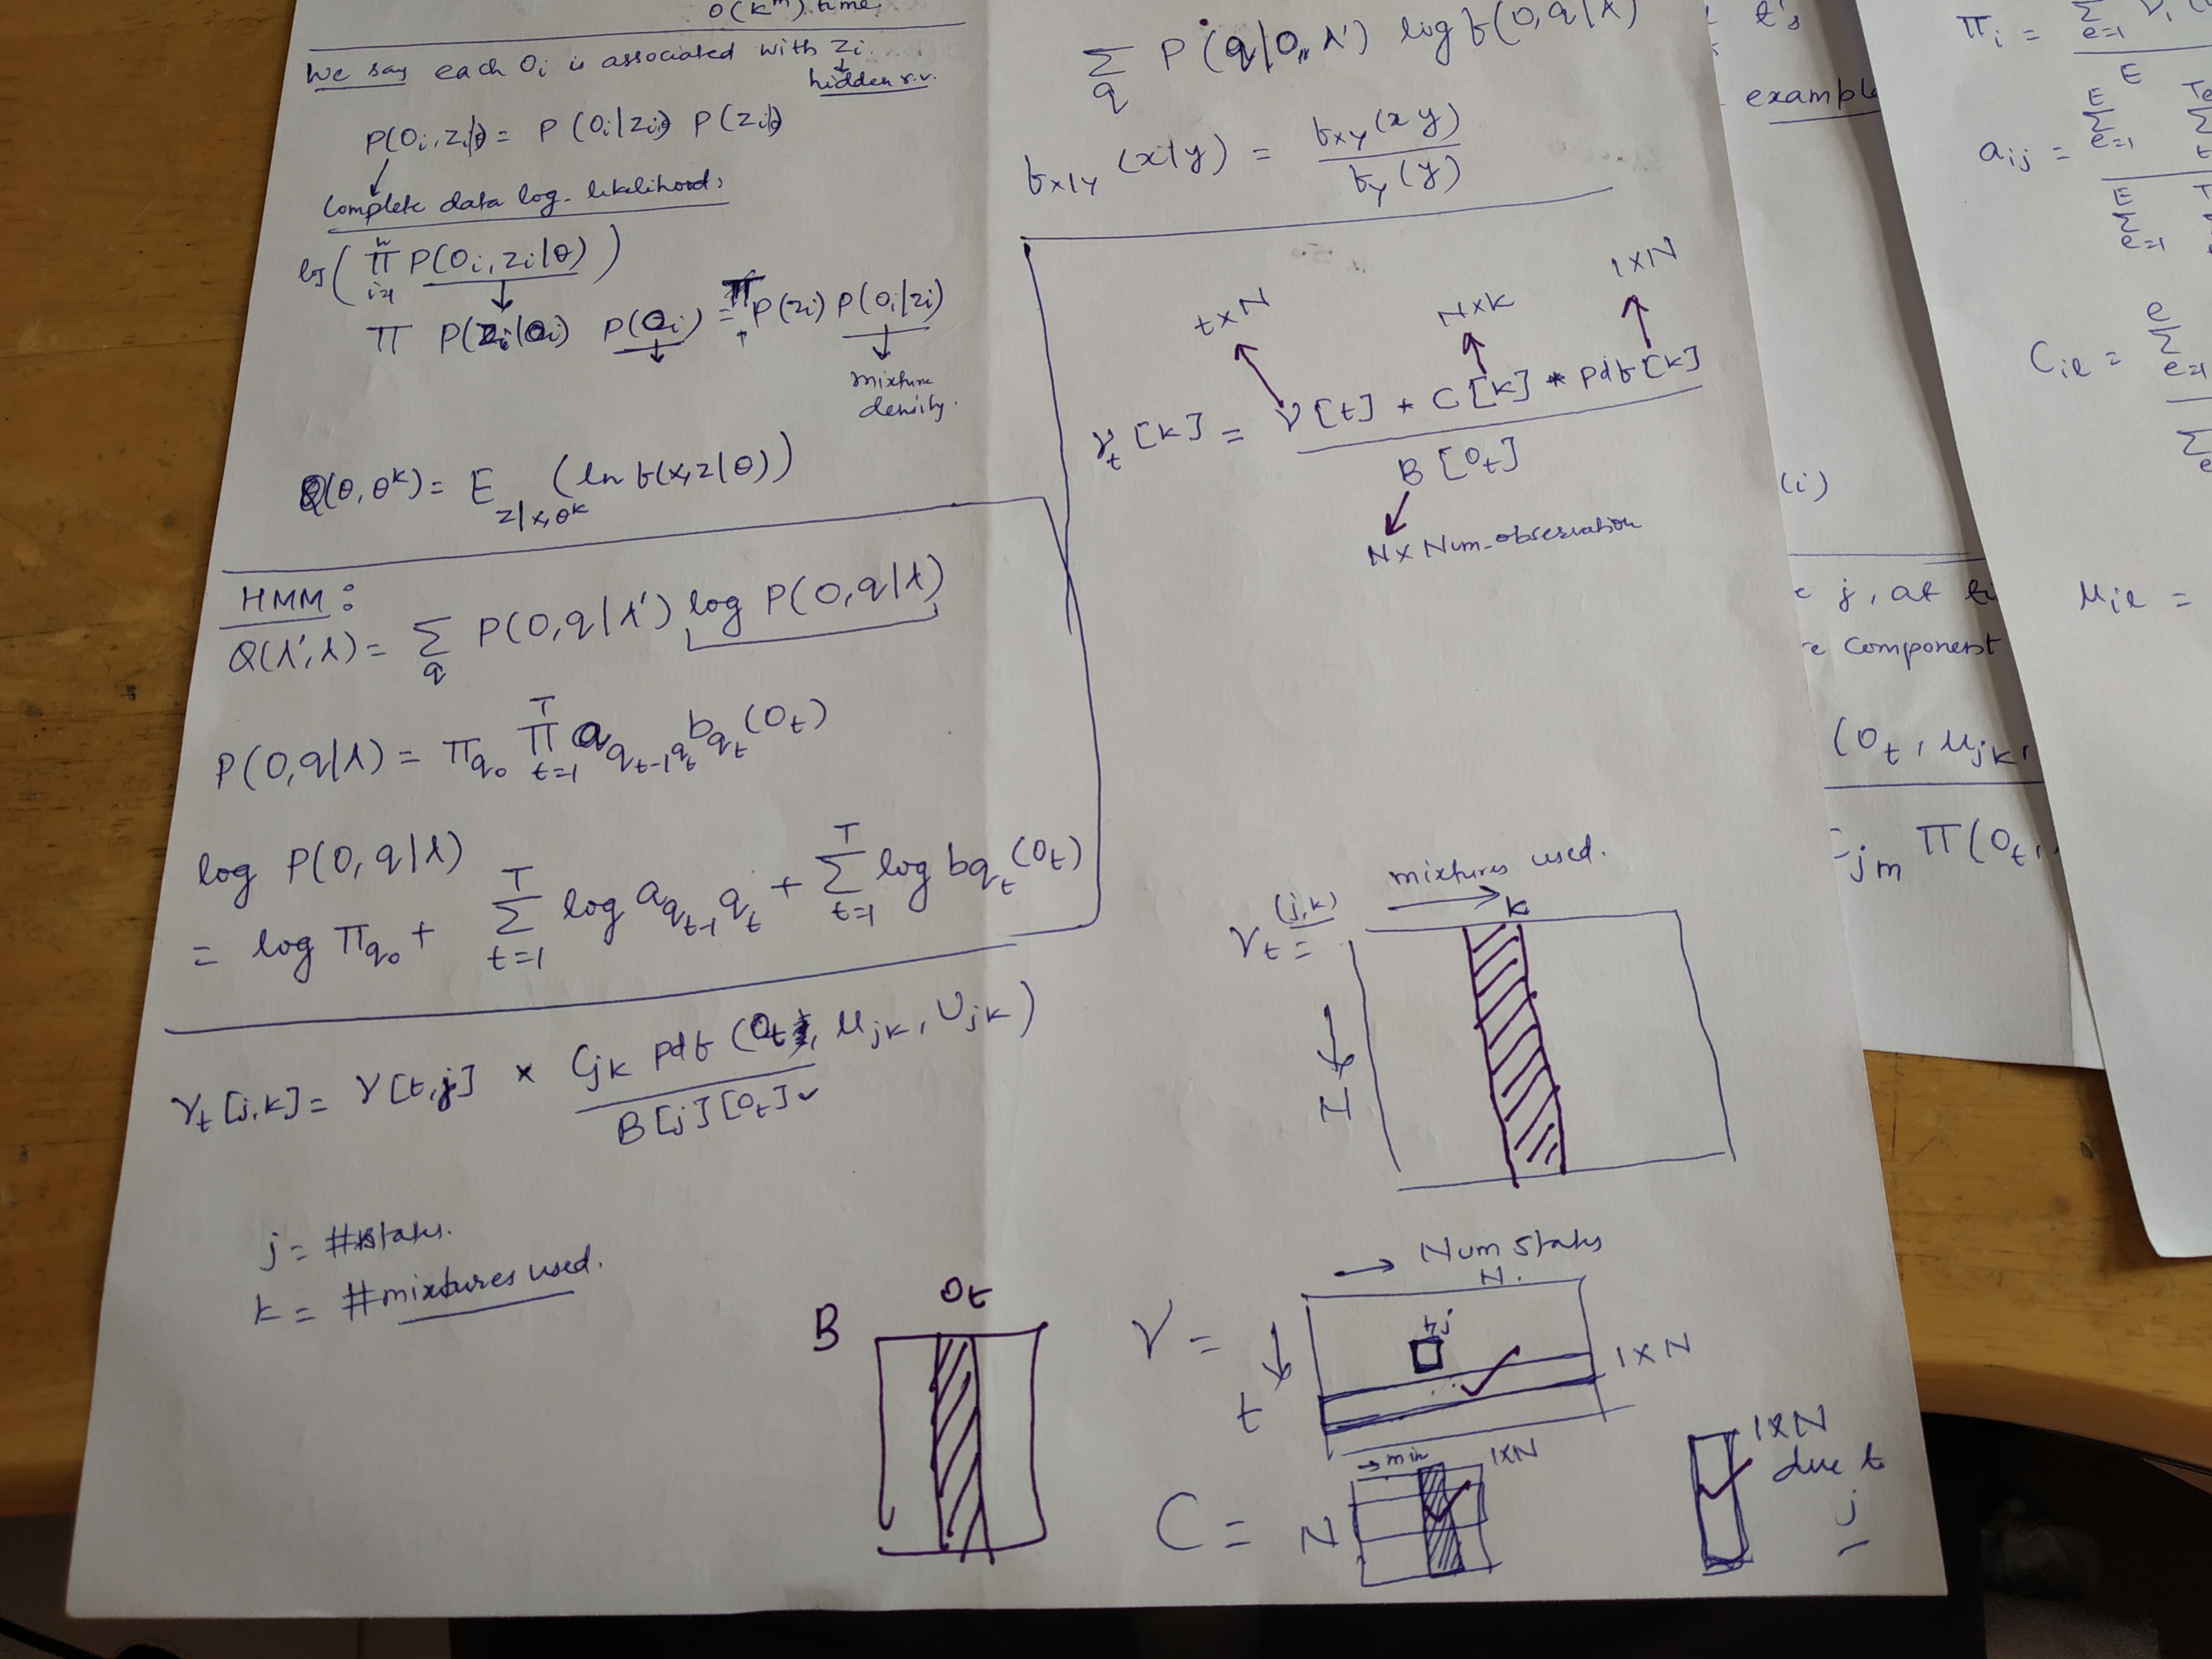 O(k^m) time
We say each Oi is associated with Zi.
hidden r.v.
P(Oi, Zi|θ) = P(Oi|Zi) P(Zi)
Complete data log. likelihood:
log( ∏ i=1 n P(Oi, Zi|θ) )
∏ P(Zi|Oi) P(Oi) = P(Zi) P(Oi|Zi)
mixture density.
Q(θ, θ^k) = E z|x,θ^k (ln f(x,z|θ))
HMM:
Q(λ', λ) = Σ q P(O,q|λ') log P(O,q|λ)
P(O,q|λ) = π q0 ∏ t=1 T a qt-1qt bqt(Ot)
log P(O,q|λ)
= log π q0 + Σ t=1 T log a qt-1 qt + Σ t=1 T log bqt(Ot)
γt[j,k] = γ[t,j] × Cjk pdf(Ot, μjk, Ujk)
B[j][Ot]
j = #states.
k = #mixtures used.
B
Ot
Σ q P(q|O, λ') log P(O,q|λ)
fx|y (x|y) = fxy(xy)
fy(y)
t×N
N×k
1×N
γt[k] = γ[t] + C[k] * pdf[k]
B[Ot]
N×Num-observation
γt(j,k) =
mixtures used.
k
N
γ =
t
→ Num states
N.
tj
1×N
C = N
→ mix
1×N
1×N
due to
j
example
(i)
j, at
component
(Ot, μjk,
jm π(Ot,
πi = Σ e=1
aij = Σ e=1 E
Σ e=1 E
Cil = Σ e=1
μil =